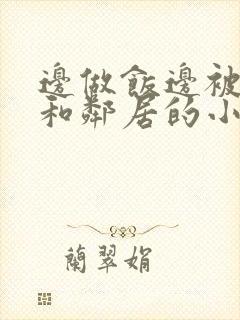 邊做飯邊被
和鄰居的小
蘭翠娟